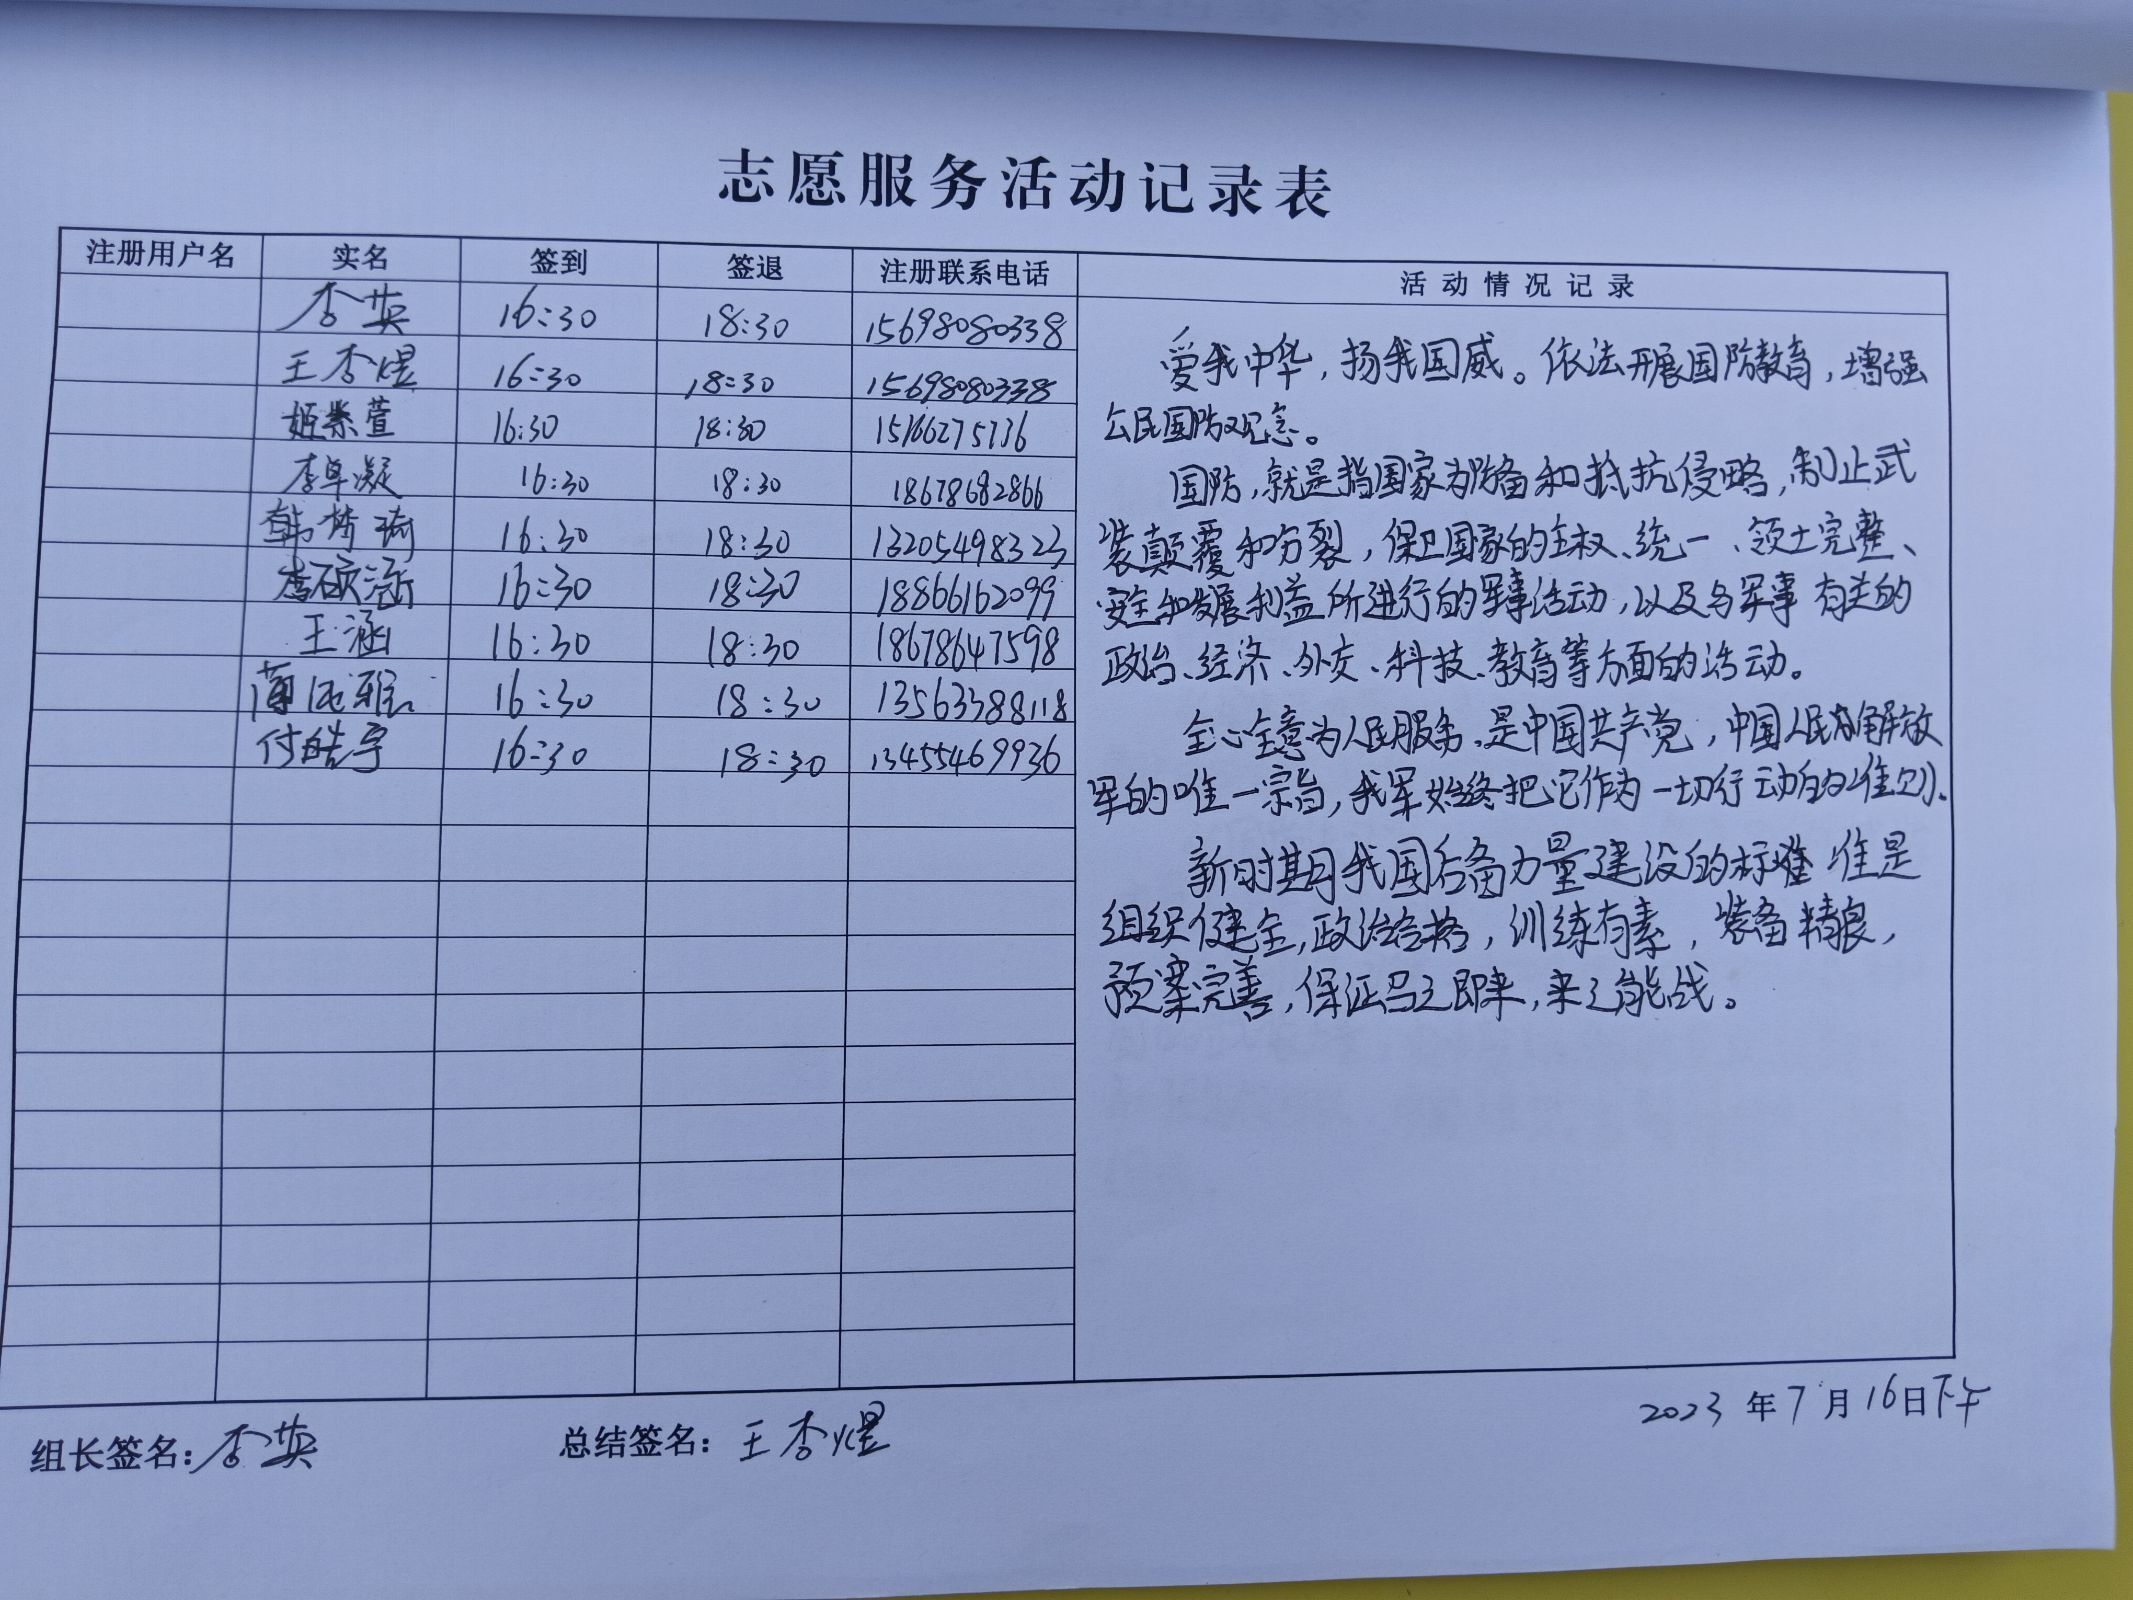 志愿服务活动记录表
注册用户名 实名 签到 签退 注册联系电话 活动情况记录
李英 16:30 18:30 15698080338
王杏煜 16:30 18:30 15698080338
姬紫萱 16:30 18:30 15166275736
李卓凝 16:30 18:30 18678682866
韩梦琦 16:30 18:30 13205498323
李硕涵 16:30 18:30 18866162099
王涵 16:30 18:30 18678647598
16:30 18:30 13563388118
付皓宇 16:30 18:30 13455469936
爱我中华，扬我国威。依法开展国防教育，增强
公民国防观念。
国防，就是指国家为防备和抵抗侵略，制止武
装颠覆和分裂，保卫国家的主权、统一、领土完整、
安全和发展利益所进行的军事活动，以及与军事有关的
政治、经济、外交、科技、教育等方面的活动。
全心全意为人民服务，是中国共产党，中国人民解放
军的唯一宗旨，我军始终把它作为一切行动的准则.
新时期我国后备力量建设的标准 准是
组织健全，政治合格，训练有素，装备精良，
预案完善，保证召之即来，来之能战。
2023 年 7 月 16 日下午
组长签名：李英 总结签名：王杏煜